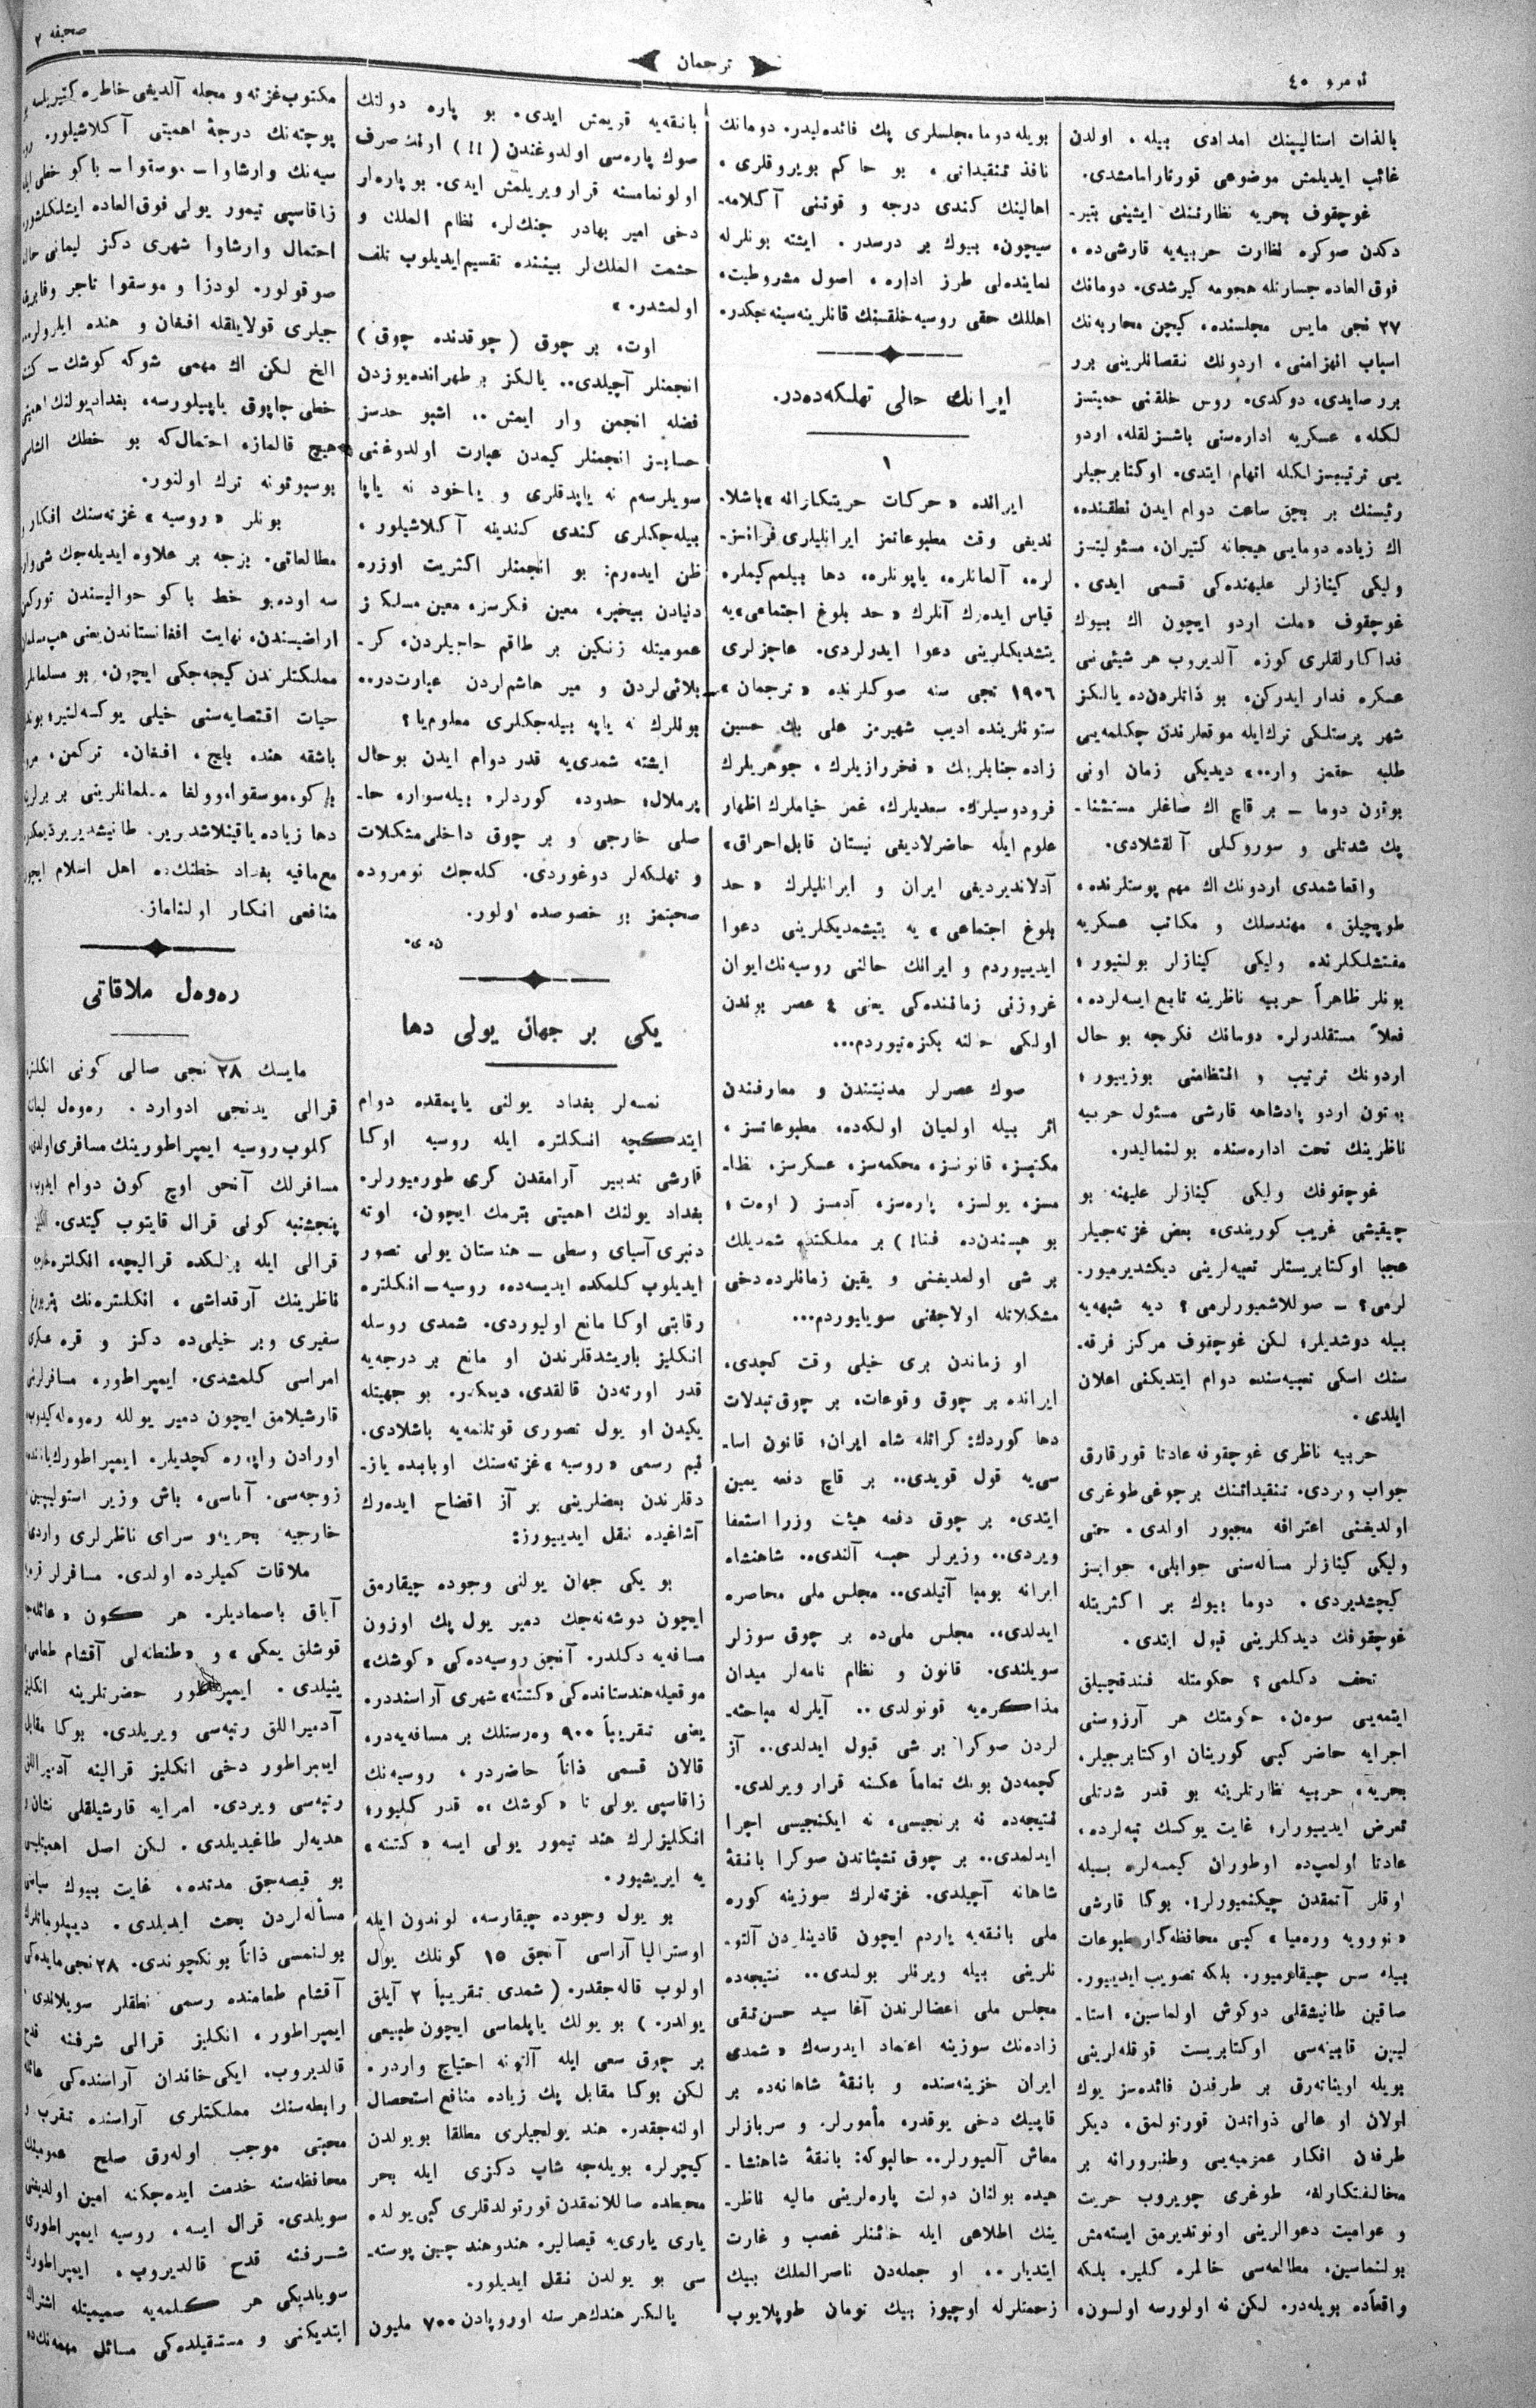 نومرو ٤٠
ترجمان
صحيفه ٢
بالذات استاليپينك امدادى بيله، اولدن
غائب ايديلمش موضوعى قورتارامامشدى.
غوچقوف بحريه نظارتنك ايشينى بتير-
دكدن صوكره نظارت حربيه‌يه قارشى‌ده،
فوق العاده جسارتله هجومه كيرشدى. دومانك
٢٧ نجى مايس مجلسنده، كيچن محاربه‌نك
اسباب انهزامنى، اردونك نقصانلرينى برر
برر صايدى، دوكدى. روس خلقنى حميتسز
لكله، عسكريه اداره‌سنى باشسزلقله، اردو
يى ترتيبسزلكله اتهام ايتدى. اوكتابرجيلر
رئيسنك بر بچق ساعت دوام ايدن نطقنده،
اك زياده دومايى هيجانه كتيران، مسئوليتسز
وليكى كينازلر عليهنده‌كى قسمى ايدى.
غوچقوف «ملت اردو ايچون اك بيوك
فداكارلقلرى كوزه آلديروب هر شيئى‌نى
عسكره فدا ايدركن، بو ذاتلردن‌ده يالكز
شهر پرستلكى ترك‌ايله موقعلرندن چكلمه‌يى
طلبه حقمز وار..» ديديكى زمان اونى
بوتون دوما – بر قاچ اك صاغلر مستثنا-
پك شدتلى و سوروكلى آلقشلادى.
واقعا شمدى اردونك اك مهم پوستلرنده،
طوپچيلق، مهندسلك و مكاتب عسكريه
مفتشلكلرنده وليكى كينازلر بولنيور؛
بونلر ظاهراً حربيه ناظرينه تابع ايسه‌لرده،
فعلاً مستقلدرلر. دومانك فكرجه بو حال
اردونك ترتيب و انتظامنى بوزييور؛
بوتون اردو پادشاهه قارشى مسئول حربيه
ناظرينك تحت اداره‌سنده بولنماليدر.
غوچقوفك وليكى كينازلر عليهنه بو
چيقيشى غريب كوريندى، بعض غزته‌جيلر
عجبا اوكتابريستلر تعبيه‌لرينى ديكشديرميور-
لرمى؟ – صوللاشميورلرمى؟ ديه شبهه‌يه
بيله دوشديلر؛ لكن غوچقوف مركز فرقه-
سنك اسكى تعبيه‌سنده دوام ايتديكنى اعلان
ايلدى.
حربيه ناظرى غوچقوفه عادتا قورقارق
جواب ويردى. تنقيداتنك برچوغى طوغرى
اولديغنى اعترافه مجبور اولدى. حتى
وليكى كينازلر مسأله‌سنى جوابلى، جوابسز
كيچشديردى. دوما بيوك بر اكثريتله
غوچقوفك ديدكلرينى قبول ايتدى.
تحف دكلمى؟ حكومتله فندقچيلق
ايتمه‌يى سون، حكومتك هر آرزوسنى
اجرايه حاضر كبى كورينان اوكتابرجيلر.
بحريه، حربيه نظارتلرينه بو قدر شدتلى
تعرض ايدييورلر؛ غايت يوكسك تپه‌لرده،
عادتا اولمپ‌ده اوطوران كيمسه‌لره بسله
اوقلر آتمقدن چيكنميورلر!. بوكا قارشى
«نووويه ورميا» كبى محافظه‌كار مطبوعات
بيله سس چيقارميور. بلكه تصويب ايدييور.
صاقين طانيشقلى دوكوش اولماسين، استا-
ليپن قابينه‌سى اوكتابريست قوقله‌لرينى
بويله اويناتەرق بر طرفدن فائده‌سز يوك
اولان او عالى ذواتدن قورتولمق، ديكر
طرفدن افكار عموميه‌يى وطنپرورانه بر
مخالفتكارلغه طوغرى چويروب حريت
و عواميت دعوالرينى اونوتديرمق ايسته‌مش
بولنماسين، مطالعه‌سى خالمره كلير. بلكه
واقعاًده بويله‌در. لكن نه اولورسه اولسون،
بويله دوما، مجلسلرى پك فائده‌ليدر. دومانك
نافذ تنقيداتى، بو حاكم بويروقلرى،
اهالينك كندى درجه و قوتنى آكلامه-
سيچون، بيوك بر درسدر. ايشته بونلرله
نماينده‌لى طرز اداره، اصول مشروطيت،
اهللك حقى روسيه خلقنك قانلرينه‌سينه‌جكدر.
ايرانك حالى تهلكه‌ده‌در.
١
ايرانده «حركات حريتكارانه» باشلا-
نديغى وقت مطبوعاتمز ايرانليلرى فرانسز-
لره، آلمانلره، ياپونلره، دها بيلمم كيملره
قياس ايده‌رك آنلرك «حد بلوغ اجتماعى»يه
يتشديكلرينى دعوا ايدرلردى. عاجزلرى
١٩٠٦ نجى سنه صوكلرنده «ترجمان»
ستونلرينده اديب شهيرمز على بك حسين
زاده جنابلرينك «فخررازيلرك، جوهريلرك
فردوسيلرك. سعديلرك، عمر خياملرك اظهار
علوم ايله حاضرلاديغى نيستان قابل‌احراق»
آدلانديرديغى ايران و ايرانليلرك «حد
بلوغ اجتماعى» يه يتيشمديكلرينى دعوا
ايدييوردم و ايرانك حالنى روسيه‌نك ايوان
غروزنى زماننده‌كى يعنى ٤ عصر بوندن
اولكى حالنه بكزه‌تيوردم...
صوك عصرلر مدنيتندن و معارفندن
اثر بيله اولميان اولكه‌ده، مطبوعاتسز،
مكتبسز، قانونسز، محكمه‌سز، عسكرسز، نظا-
مسز، يولسز، پاره‌سز، آدمسز (اوه‌ت؛
بو هپسندن‌ده فنا!) بر مملكتده شمديلك
بر شى اولمديغنى و يقين زمانلرده‌دخى
مشكلاتله اولاجغنى سويليوردم...
او زماندن برى خيلى وقت كچدى.
ايرانده بر چوق وقوعات، بر چوق تبدلات
دها كوردك: كرائله شاه ايران؛ قانون اسا-
سى‌يه قول قويدى.. بر قاچ دفعه يمين
ايتدى. بر چوق دفعه هيئت وزرا استعفا
ويردى.. وزيرلر حبسه آلندى.. شاهنشاه
ايرانه بومبا آتيلدى.. مجلس ملى محاصره
ايدلدى.. مجلس ملى‌ده بر چوق سوزلر
سويلندى. قانون و نظام نامه‌لر ميدان
مذاكره‌يه قونولدى.. آيلرله مباحثه-
لردن صوكرا برشى قبول ايدلدى.. آز
كچمه‌دن بونك تماماً عكسنه قرار ويرلدى.
نتيجه‌ده نه برنجيسى، نه ايكنجيسى اجرا
ايدلمدى.. بر چوق تشبثاتدن صوكرا بانقهٔ
شاهانه آچيلدى. غزته‌لرك سوزينه كوره
ملى بانقه‌يه ياردم ايچون قادينلردن آلتو-
نلرينى بيله ويرنلر بولندى.. نتيجه‌ده
مجلس ملى اعضالرندن آغا سيد حسن‌تقى
زاده‌نك سوزينه اعتماد ايدرسه‌ك «شمدى
ايران خزينه‌سنده و بانقهٔ شاهانه‌ده بر
قاپيك دخى يوقدر. مأمورلر و سربازلر
معاش آلميورلر.. حالبوكه: بانقهٔ شاهنشا-
هيده بولنان دولت پاره‌لرينى ماليه ناظر-
ينك اطلاعى ايله خائنلر غصب و غارت
ايتديلر.. او جمله‌دن ناصرالملك بييك
زحمتلرله اوچيوز بيك تومان طوپلايوب
بانقه‌يه قويمش ايدى. بو پاره دولتك
صوك پاره‌سى اولدوغندن (!!) اونك صرف
اولونمامسنه قرار ويريلمش ايدى. بو پاره‌لر
دخى امير بهادر جنك‌لر، نظام الملك و
حشمت الملك‌لر بيننده تقسيم‌ايديلوب تلف
اولمشدر.»
اوت، بر چوق (چوقدنده چوق)
انجمنلر آچيلدى.. يالكز بر طهرانده‌يوزدن
فضله انجمن وار ايمش.. اشبو حدسز
حسابسز انجمنلر كيمدن عبارت اولدوغنى
سويلرسه‌م نه ياپدقلرى و ياخود نه ياپا
بيله‌جكلرى كندى كندينه آكلاشيلور.
ظن ايده‌رم: بو انجمنلر اكثريت اوزره
دنيادن بيخبر، معين فكرسز، معين مسلكسز
عموميتله زنكين بر طاقم حاجيلردن، كر-
بلائى‌لردن و مير هاشم‌لردن عبارت‌در..
بونلرك نه ياپه بيله‌جكلرى معلوم‌يا؟
ايشته شمدى‌يه قدر دوام ايدن بوحال
پرملال؛ حدود، كوردلر، بيله‌سوار، حا-
صلى خارجى و بر چوق داخلى مشكلات
و تهلكه‌لر دوغوردى. كله‌جك نومروده
صحبتمز بو خصوصده اولور.
ن. ى.
يكى بر جهان يولى دها
نمسه‌لر بغداد يولنى ياپمقده دوام
ايتدكچه انكلتره ايله روسيه اوكا
قارشى تدبير آرامقدن كرى طورميورلر.
بغداد يولنك اهميتى بترمك ايچون، اوته
دنبرى آسياى وسطى – هندستان يولى تصور
ايديلوب كلمكده ايديسه‌ده، روسيه – انكلتره
رقابتى اوكا مانع اوليوردى. شمدى روسله
انكليز باريشدقلرندن او مانع بر درجه‌يه
قدر اورته‌دن قالقدى، ديمكدر. بو جهتله
يكيدن او يول تصورى قوتلنمه‌يه باشلادى.
نيم رسمى «روسيه» غزته‌سنك اوبابده ياز-
دقلرندن بعضلرينى بر آز اقضاح ايده‌رك
آشاغيده نقل ايدييورز:
بو يكى جهان يولنى وجوده چيقارمق
ايچون دوشه‌نه‌جك دمير يول پك اوزون
مسافه‌يه دكلدر. آنجق روسيه‌ده‌كى «كوشك»
موقعيله هندستانده‌كى «كتته» شهرى آراسنددر.
يعنى تقريباً ٩٠٠ وه‌رستلك بر مسافه‌يه‌در.
قالان قسمى ذاتاً حاضردر، روسيه‌نك
زاقاسپى يولى تا «كوشك»ه قدر كليور؛
انكليزلرك هند تيمور يولى ايسه «كتته»
يه ايريشيور.
بو يول وجوده چيقارسه، لوندون ايله
اوستراليا آراسى آنجق ١٥ كونلك يول
اولوب قاله‌جقدر. (شمدى تقريباً ٢ آيلق
يولدر.) بو يولك ياپلماسى ايچون طبيعى
بر چوق سعى ايله آلتونه احتياج واردر.
لكن بوكا مقابل پك زياده منافع استحصال
اولنه‌جقدر. هند يولجيلرى مطلقا بويولدن
كيچرلر. بويله‌جه شاپ دكزى ايله بحر
محيطده صاللانمقدن قورتولدقلرى كبى يولده
يارى يارى‌يه قيصالير. هندوهند چين پوسته-
سى بو يولدن نقل ايديلور.
يالكز هندك هر سنه اوروپادن ٧٠٠ مليون
مكتوب غزته و مجله آلديغى خاطره كتيريلسه
پوچته‌نك درجهٔ اهميتى آكلاشيلور.
سيه‌نك وارشاوا – موسقوا – باكو خطى ايله
زاقاسپى تيمور يولى فوق‌العاده ايشلكلشور.
احتمال وارشاوا شهرى دكز ليمانى حاله
صوقولور. لودزا و موسقوا تاجر وفابريقه
جيلرى قولايلقله افغان و هنده ايلرولر...
الخ لكن اك مهمى شوكه كوشك – كتته
خطى چاپوق ياپيلورسه، بغداد يولنك اهميتى
هيچ قالماز، احتمال‌كه بو خطك انشاسى
بوسبوتونه ترك اولنور.
بونلر «روسيه» غزته‌سنك افكار و
مطالعاتى. بزجه بر علاوه ايديله‌جك شى‌وار
سه اوده‌بو خط باكو حواليسندن توركمن
اراضيسندن، نهايت افغانستاندن‌يعنى هپ‌مسلمان
مملكتلرندن كيجه‌جكى ايچون، بو مسلمانلر
حيات اقتصايه‌سنى خيلى يوكسه‌لتير؛ بوندن
باشقه هند، بلچ، افغان، تركمن، مرو
باكو، موسقوا، وولغا مسلمانلرينى بر برلرينه
دها زياده ياقينلاشدرير. طانيشديرير ديمكدر
مع‌مافيه بغداد خطنك‌ده اهل اسلام ايچون
منافعى انكار اولنماز.
ره‌وه‌ل ملاقاتى
مايسك ٢٨ نجى صالى كونى انكلتره
قرالى يدنجى ادوارد. ره‌وه‌ل ليمانه
كلوب روسيه ايمپراطورينك مسافرى اولدى.
مسافرلك آنجق اوچ كون دوام ايدوب،
پنجشنبه كونى قرال قايتوب كيتدى. انكليز
قرالى ايله برلكده قراليچه، انكلتره خارجيه
ناظرينك آرقداشى، انكلتره‌نك پتربورغ
سفيرى وبر خيلى‌ده دكز و قره عسكرى
امراسى كلمشدى. ايمپراطور، مسافرلرينى
قارشيلامق ايچون دمير يولله ره‌وه‌له كيدوب
اورادن واپوره كچديلر. ايمپراطورك ياننده
زوجه‌سى. آناسى، باش وزير استوليپين
خارجيه بحريه‌و سراى ناظرلرى واردى.
ملاقات كميلرده اولدى. مسافرلر قره‌يه
آياق باصماديلر. هر كون «عائله‌جه
قوشلق يمكى» و «طنطنه‌لى آقشام طعامى»
ينيلدى. ايمپراطور حضرتلرينه انكليز
آدميراللق رتبه‌سى ويريلدى. بوكا مقابل
ايمپراطور دخى انكليز قرالينه آدميراللق
رتبه‌سى ويردى. امرايه قارشيلقلى نشان و
هديه‌لر طاغيديلدى. لكن اصل اهميتليسى
بو قيصه‌جق مدتده، غايت بيوك سياسى
مسأله‌لردن بحث ايديلدى. ديپلوماتلرك
بولنمسى ذاتاً بونكچوندى. ٢٨ نجى مايده‌كى
آقشام طعامنده رسمى نطقلر سويلاندى
ايمپراطور، انكليز قرالى شرفنه قدح
قالديروب. ايكى خاندان آراسنده‌كى عائله
رابطه‌سنك مملكتلرى آراسنده تقرب و
محبتى موجب اوله‌رق صلح عمومينك
محافظه‌سنه خدمت ايده‌جكنه امين اولديغنى
سويلدى. قرال ايسه، روسيه ايمپراطورى
شرفنه قدح قالديروب، ايمپراطورك
سويلديكى هر كلمه‌يه صميميتله اشتراك
ايتديكنى و مستقبلده‌كى مسائل مهمه‌نك‌ده